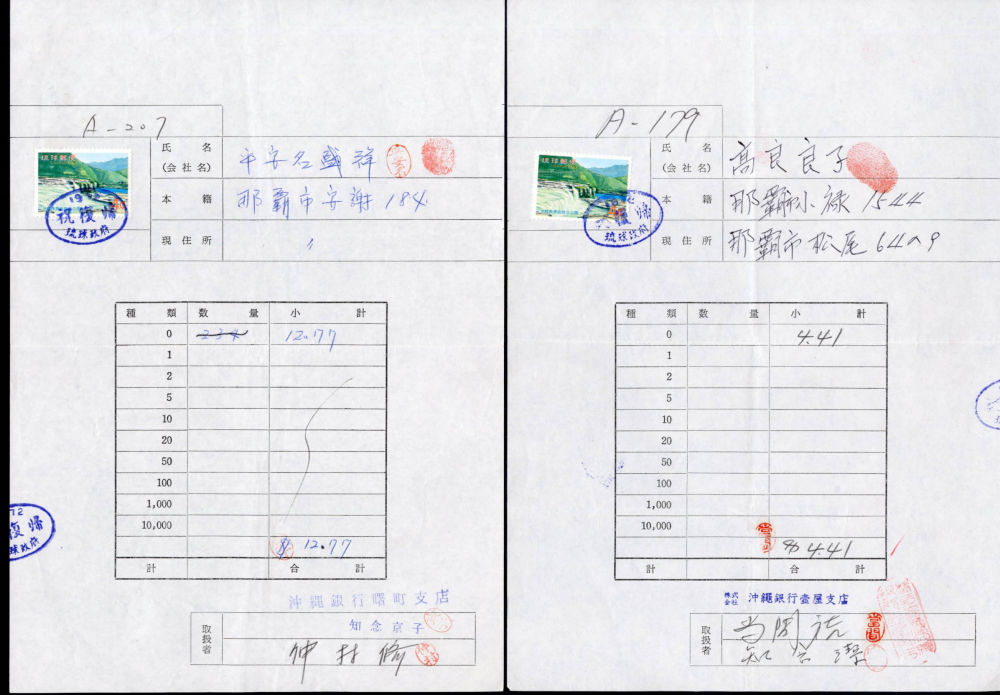 A-207
琉球郵便
祝復帰
琉球政府
氏名
(会社名)
平安名盛祥
本籍
那覇市安謝184
現住所
〃
種類 数量 小計
0 234 12.77
1
2
5
10
20
50
100
1,000
10,000
12.77
計 合計
72
復帰
球政府
沖縄銀行曙町支店
知念京子
取扱者
仲村
A-179
琉球郵便
復帰
琉球政府
氏名
(会社名)
高良良子
本籍
那覇市小禄1544
現住所
那覇市松尾64の9
種類 数量 小計
0 4.41
1
2
5
10
20
50
100
1,000
10,000
4.41
計 合計
株式会社 沖縄銀行壺屋支店
取扱者
当間
知念 潔